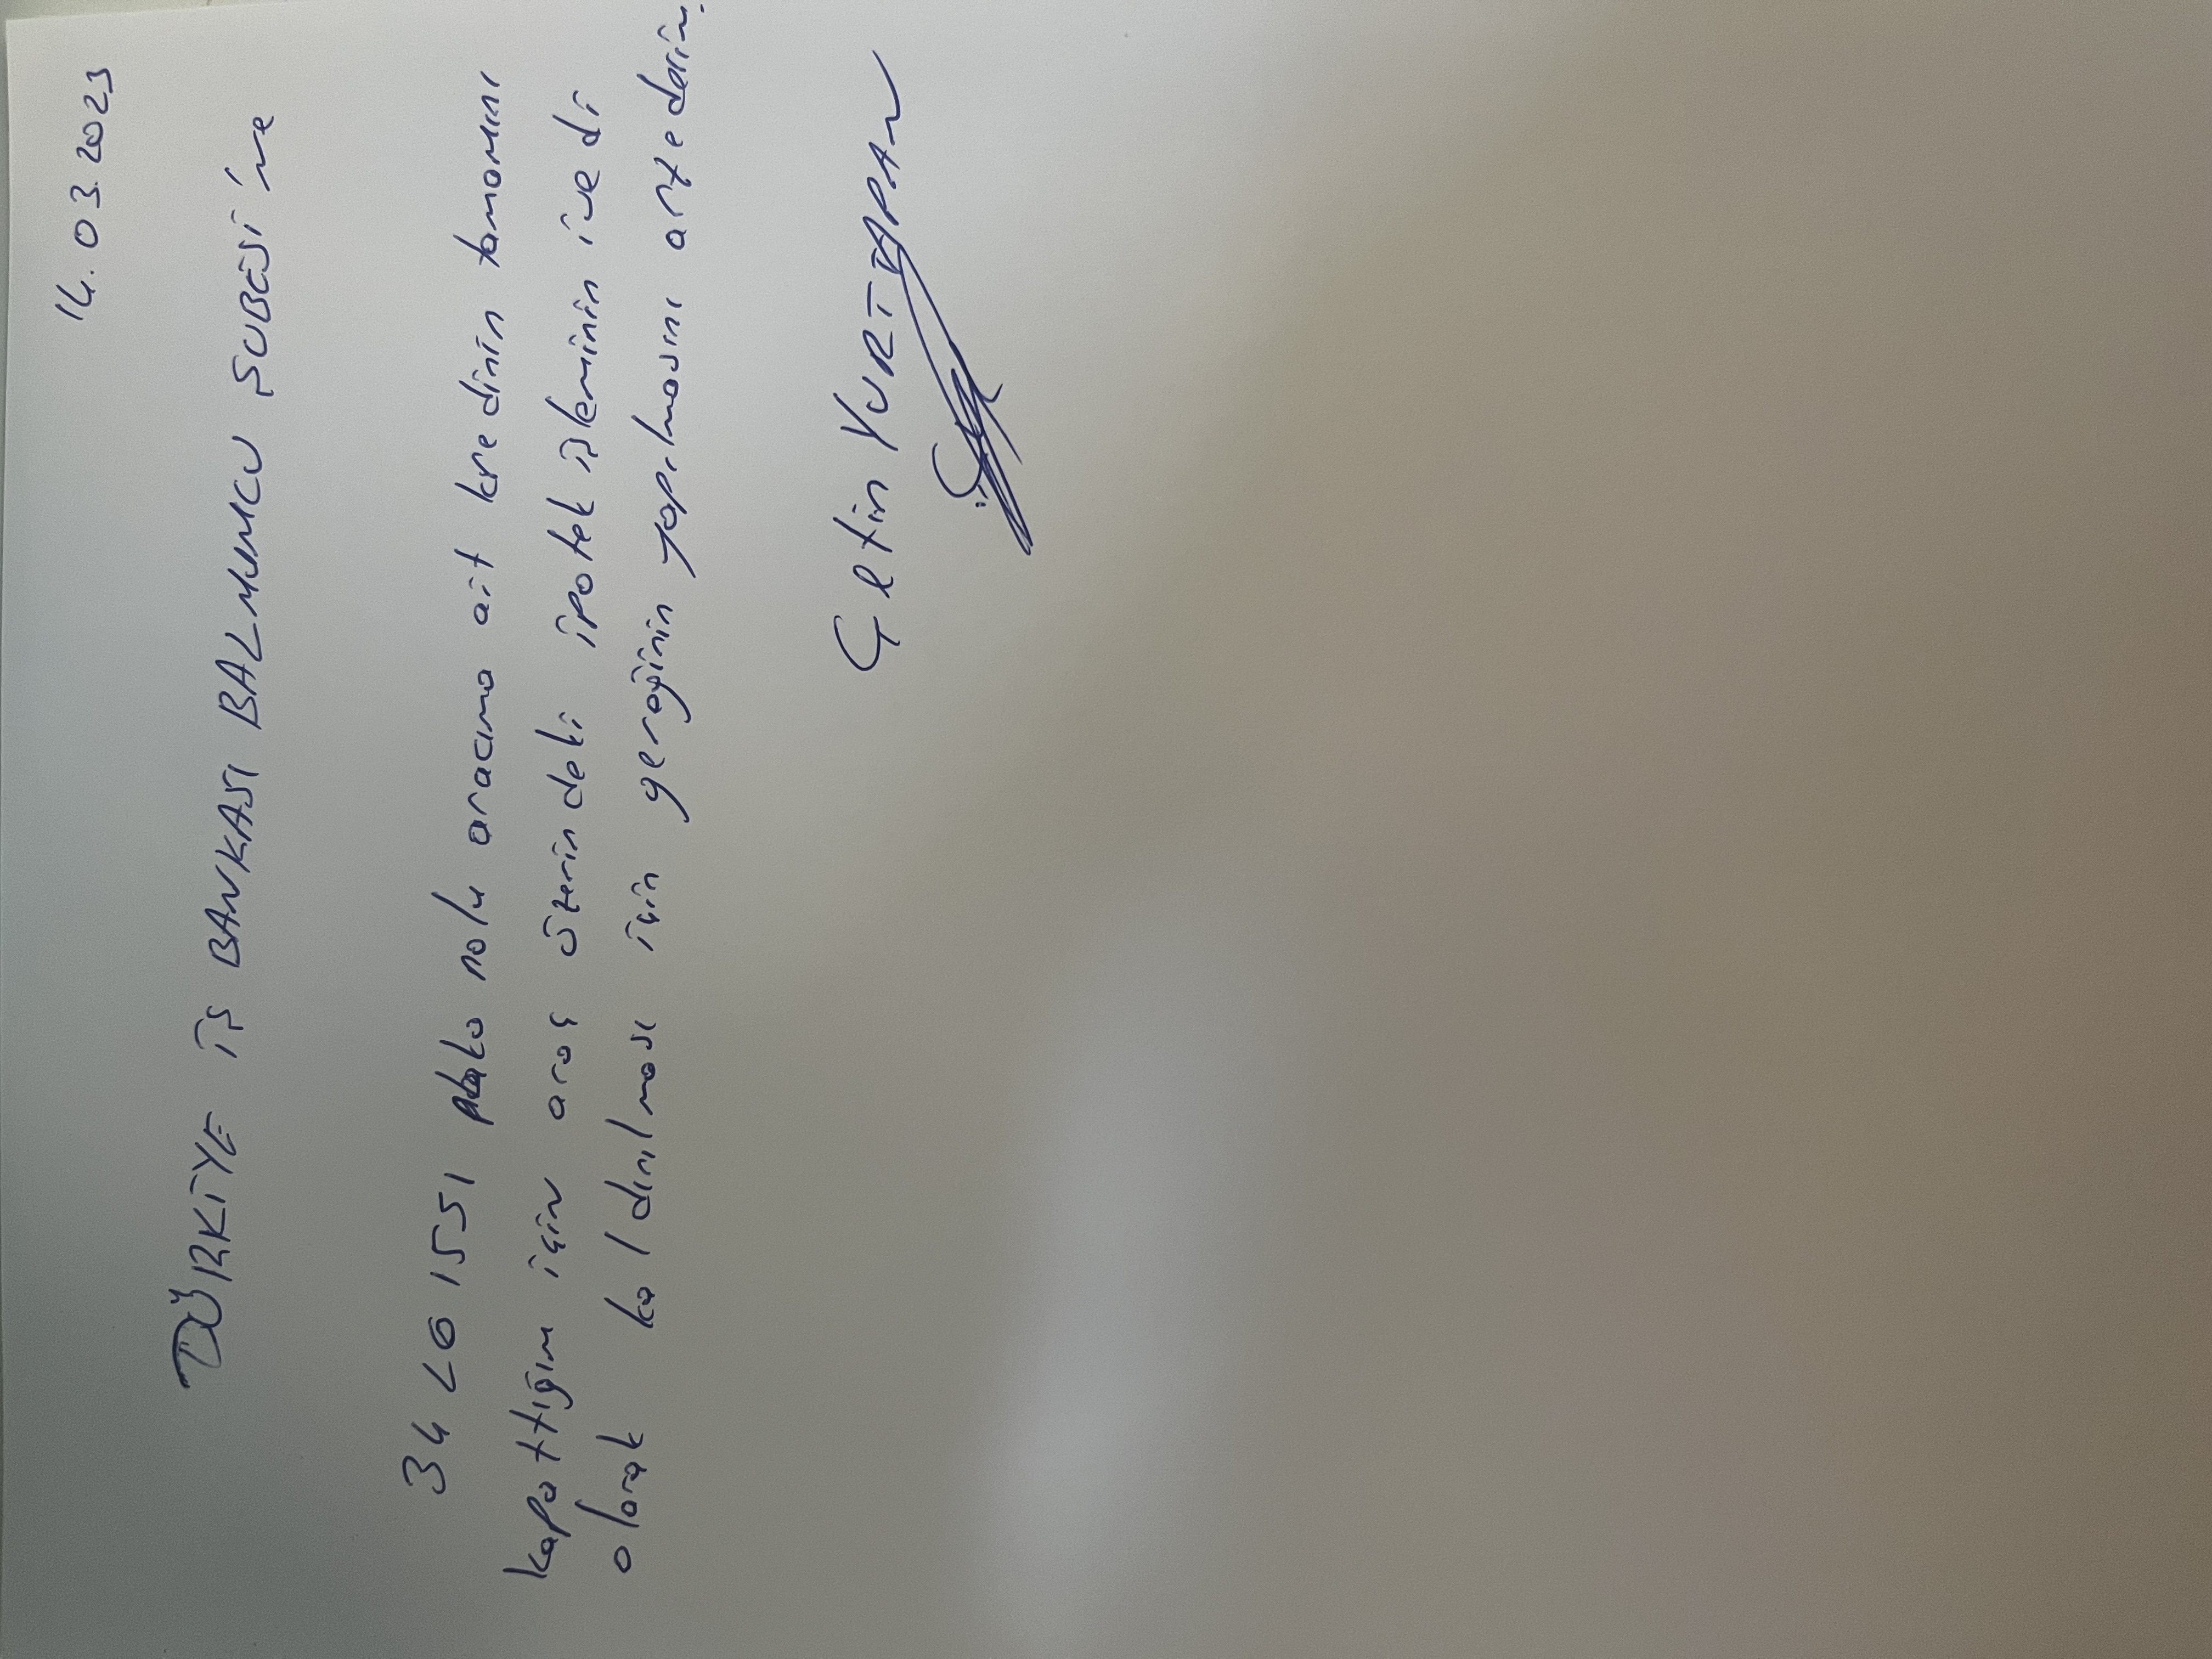 14.03.2023
TÜRKİYE İŞ BANKASI BALMUMCU ŞUBESİ'ne
34 LG 1551 plaka nolu aracıma ait kredinin tamamını
kapattığım için araç üzerindeki ipotek işleminin ivedi
olarak kaldırılması için gereğinin yapılmasını arz ederim.
Çetin YURTTAPAN